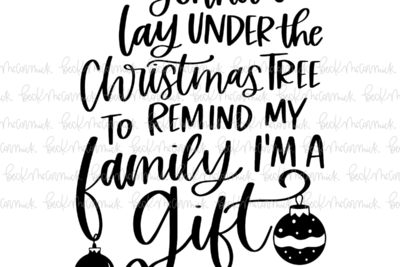 lay UNDER the
Christmas TREE
TO REMIND MY
family I'M A
gift